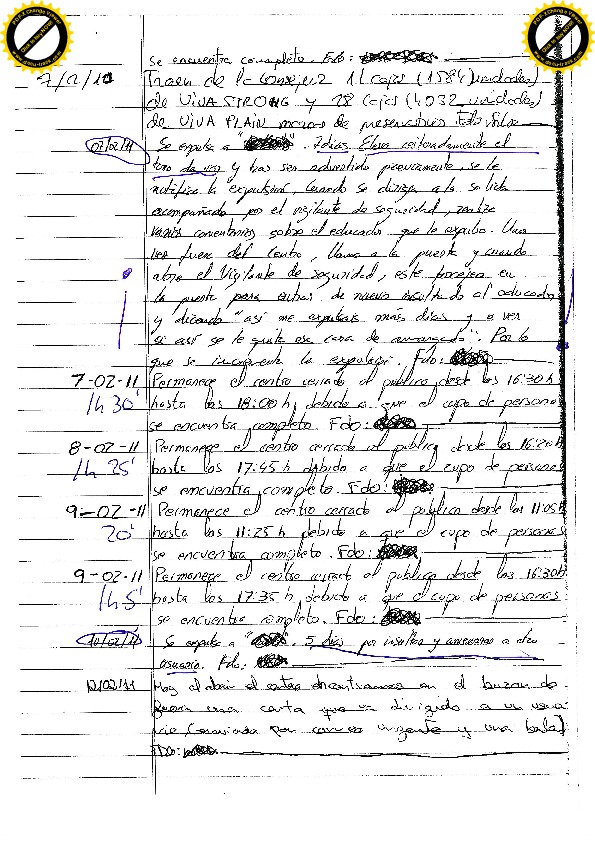 se encuentra completo. Fdo:
7/2/11 Traen de la Consejería 11 cajas (1584 unidades)
de VIVA STRONG y 28 cajas (4032 unidades)
de VIVA PLAIN marcas de preservativos
07/02/11 Se expulsa a " ". 7 días. Eleva reiteradamente el
tono de voz y tras ser advertido previamente, se le
notifica la expulsión, cuando se dirige a la salida
acompañado por el vigilante de seguridad, realiza
varios comentarios sobre el educador que le expulsa. Una
vez fuera del centro, llama a la puerta y cuando
abre el Vigilante de seguridad, este forcejea en
la puerta para entrar de nuevo insultando al educador
y diciendo "así me expulsáis más días y a ver
si así se le quita esa cara de amargado". Por lo
que se incrementa la expulsión. Fdo:
7-02-11 Permanece el centro cerrado al público desde las 16:30h
1h 30' hasta las 18:00 h, debido a que el cupo de personas
se encuentra completo. Fdo:
8-02-11 Permanece el centro cerrado al público desde las 16:20h
1h 25' hasta las 17:45 h debido a que el cupo de personas
se encuentra completo. Fdo:
9-02-11 Permanece el centro cerrado al público desde las 11:05h
20' hasta las 11:25 h debido a que el cupo de personas
se encuentra completo. Fdo:
9-02-11 Permanece el centro cerrado al público desde las 16:30h
1h 5' hasta las 17:35 h debido a que el cupo de personas
se encuentra completo. Fdo:
10/02/11 Se expulsa a " ". 5 días por insultos y amenazas a otro
usuario. Fdo:
12/02/11 Hoy al abrir el centro encontramos en el buzón de
fuera una carta que va dirigido a un usua
rio (enviada por correo urgente y una bala)
FDO: